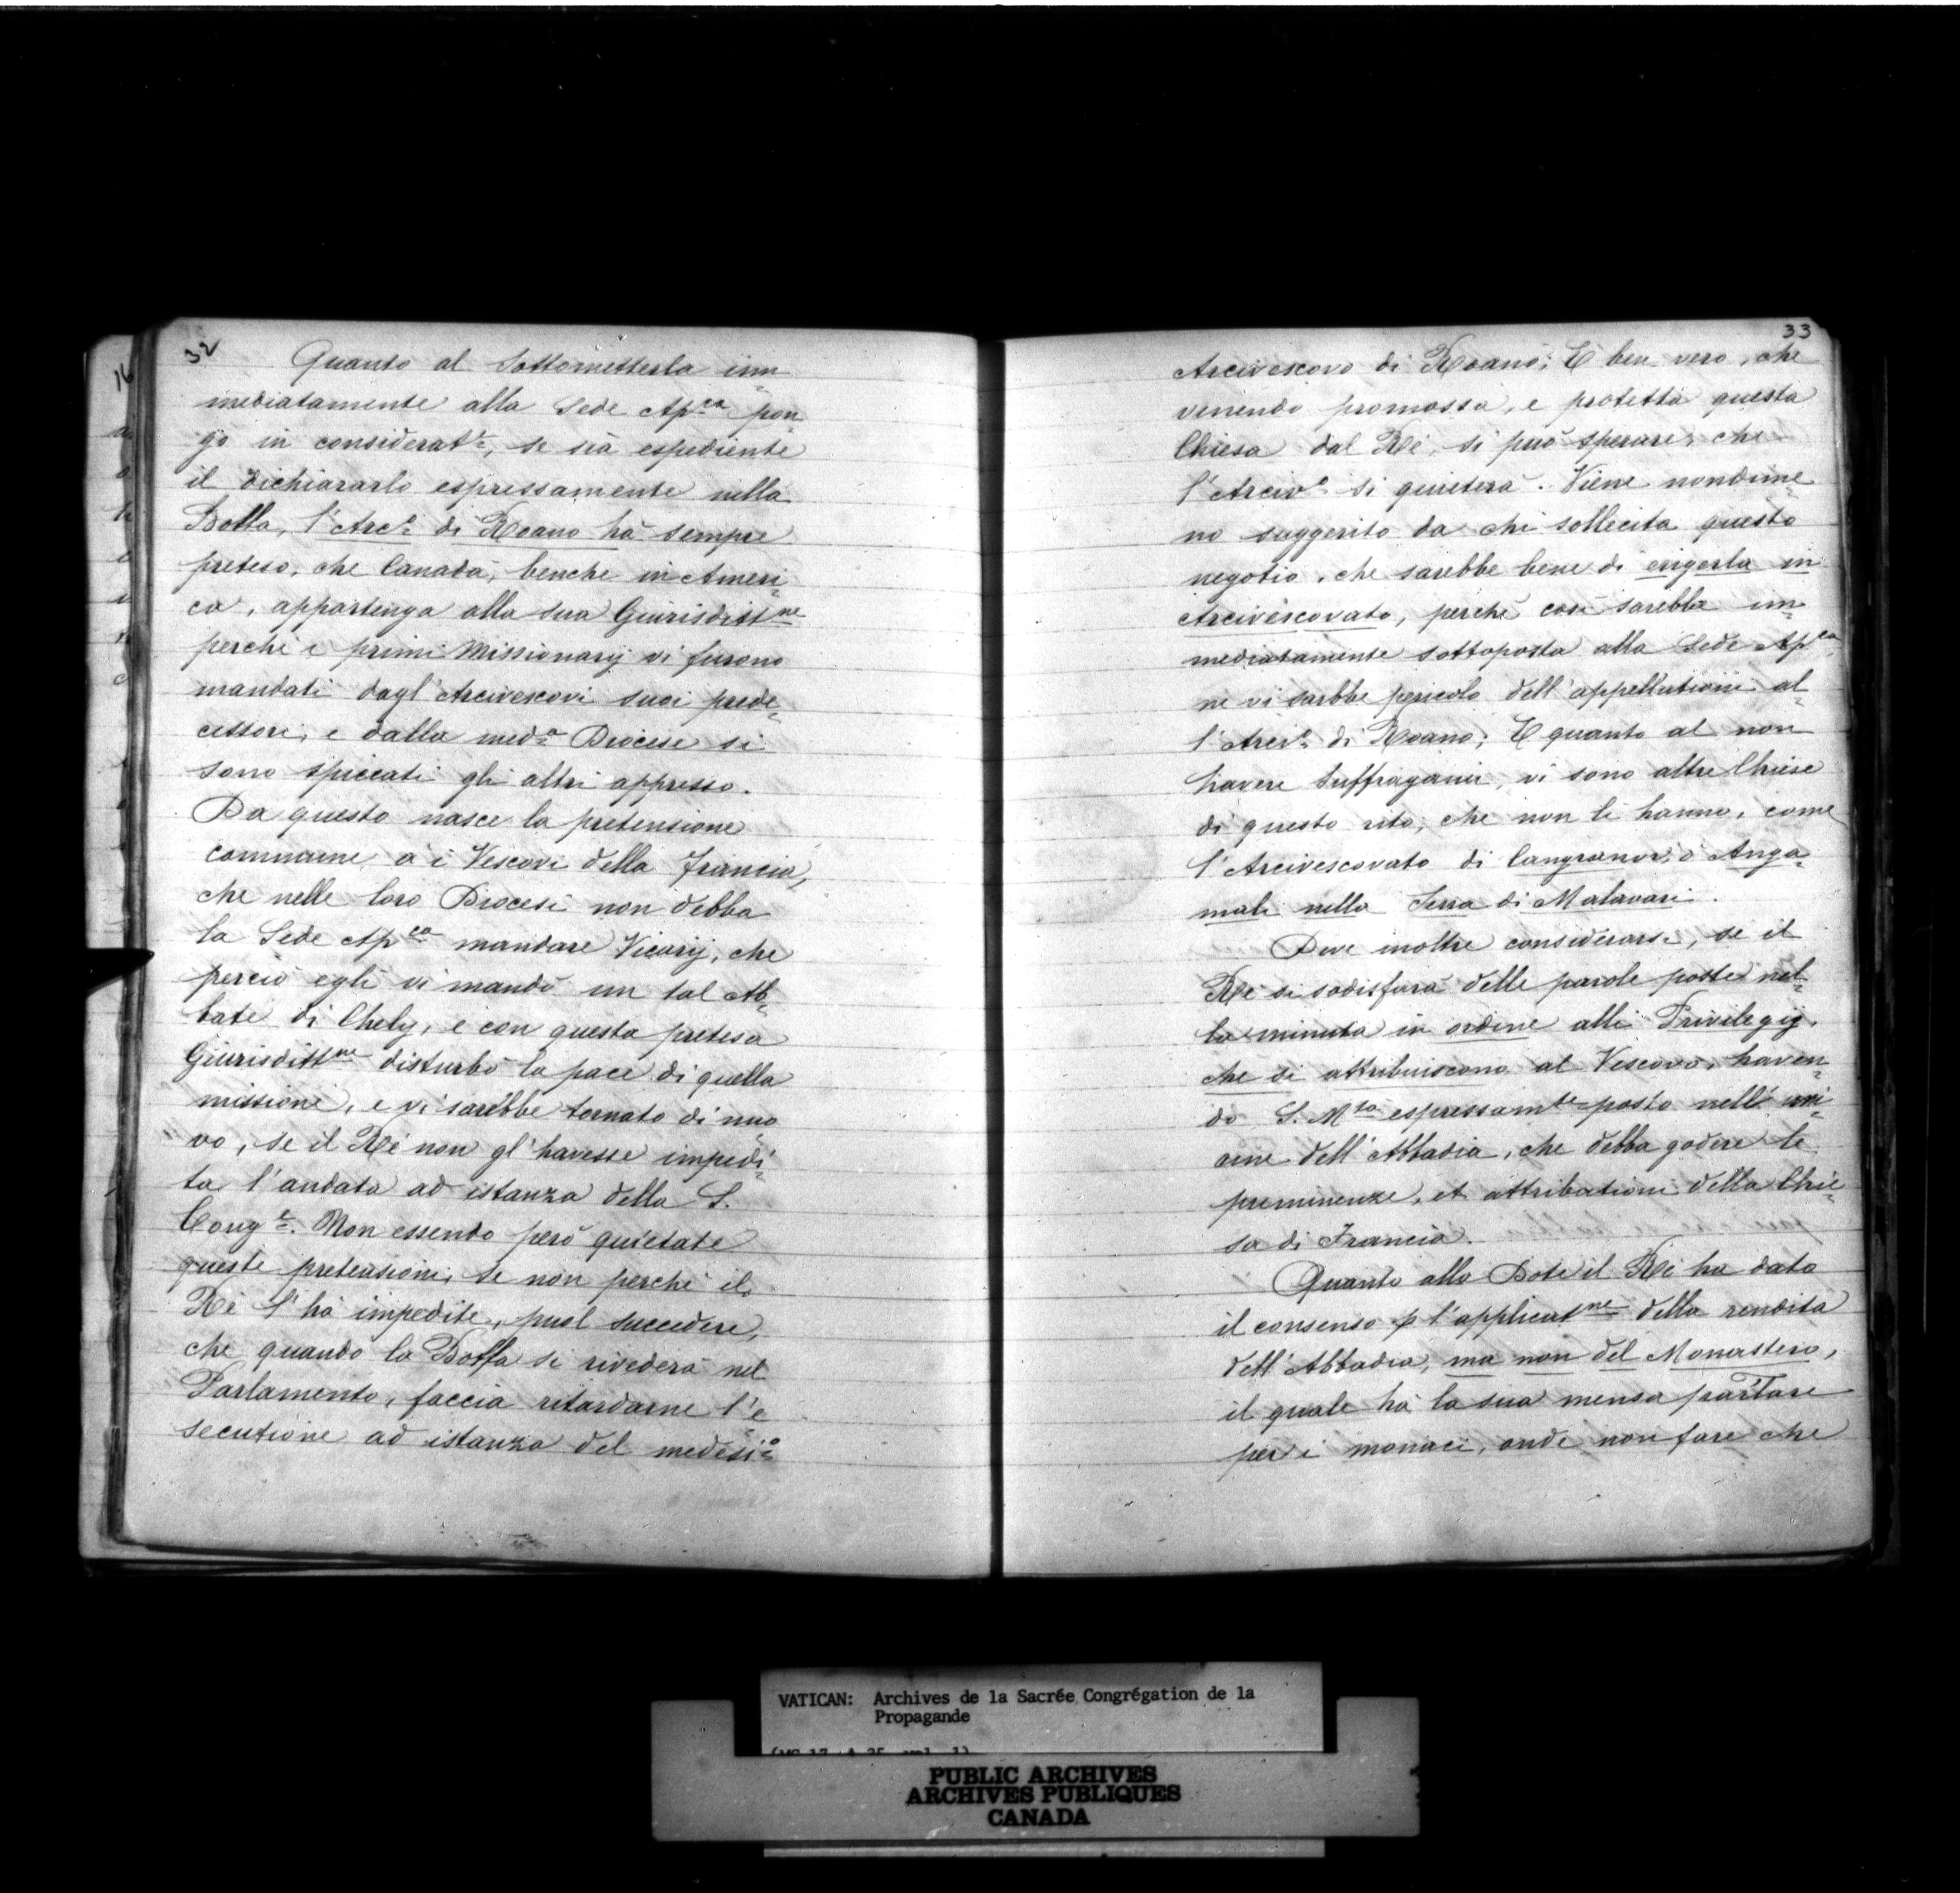 32
Quanto al Sottometterla im=
mediatamente alla Sede Ap.ca pon=
go in considerat.e, se sia espediente
il dichiararlo espressamente nella
Bolla, l'Arc.o di Roano hà sempre
preteso, che Canadà, benche in Ameri=
ca, appartenga alla sua Giurisditt.ne
perchè i primi Missionarij vi furono
mandati dagl'Arcivescovi suoi prede=
cessori, e dalla med.a Diocese si
sono spiccati gli altri appresso.
Da questo nasce la pretensione
commune a i Vescovi della Francia,
che nelle loro Diocesi non debba
la Sede Ap.ca mandare Vicarij, che
perciò egli vi mandò un tal Ab=
bate di Chely, e con questa pretesa
Giurisditt.ne disturbò la pace di quella
missione, e vi sarebbe tornato di nuo=
vo, se il Rè non gl'havesse impedi=
ta l'andata ad istanza della S.
Cong.e. Non essendo però quietate
queste pretensioni, se non perchè il
Rè l'hà impedite, puol succedere,
che quando la Bolla si rivederà nel
Parlamento, faccia ritardarne l'e=
secutione ad istanza del medesi.o=
33
Arcivescovo di Roano; E ben vero, che
venendo promossa, e protetta questa
Chiesa dal Rè, si può sperare, che
l'Arciv.o si quieterà. Viene nondime=
no suggerito da chi sollecita questo
negotio, che sarebbe bene di erigerla in
Arcivescovato, perchè così sarebbe im=
mediatamente sottoposta alla Sede Ap.ca
ne vi sarbbe pericolo dell'appellationi al=
l'Arciv.o di Roano; E quanto al non
havere Suffraganei, vi sono altre Chiese
di questo rito, che non li hanno, come
l'Arcivescovato di Cangranor, ò Anga=
mali nella Serra di Malavari.
Deve inoltre considerarsi, se il
Rè si sodisfarà delle parole poste nel=
la minuta in ordine alli Privilegij,
che si attribuiscono al Vescovo, haven=
do S. M.tà espressam.te posto nell' uni=
one dell'Abbadia, che debba godere le
preminenze, et attributioni della Chie=
sa di Francia.
Quanto alla Dote il Rè ha dato
il consenso p l'applicat.ne della rendita
dell'Abbadia, ma non del Monastero,
il quale hà la sua mensa par̃tare
per i monaci, onde non fare che
VATICAN: Archives de la Sacrée Congrégation de la
Propagande
PUBLIC ARCHIVES
ARCHIVES PUBLIQUES
CANADA